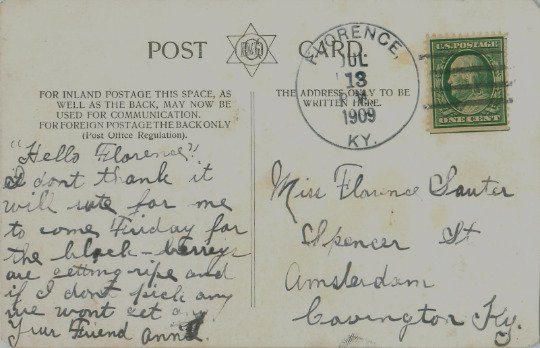 POST CARD
FOR INLAND POSTAGE THIS SPACE, AS
WELL AS THE BACK, MAY NOW BE
USED FOR COMMUNICATION.
FOR FOREIGN POSTAGE THE BACK ONLY
(Post Office Regulation).
THE ADDRESS ONLY TO BE
WRITTEN HERE.
FLORENCE,
JUL
13
1909
KY.
U.S. POSTAGE
ONE CENT
"Hello Florence"
I dont thank it
will sute for me
to come Friday for
the black-berreys
are getting ripe and
if I dont pick any
we wont get any
Your Friend Anna.
Miss Florence Sauter
Spencer St
Amsterdam
Covington Ky.